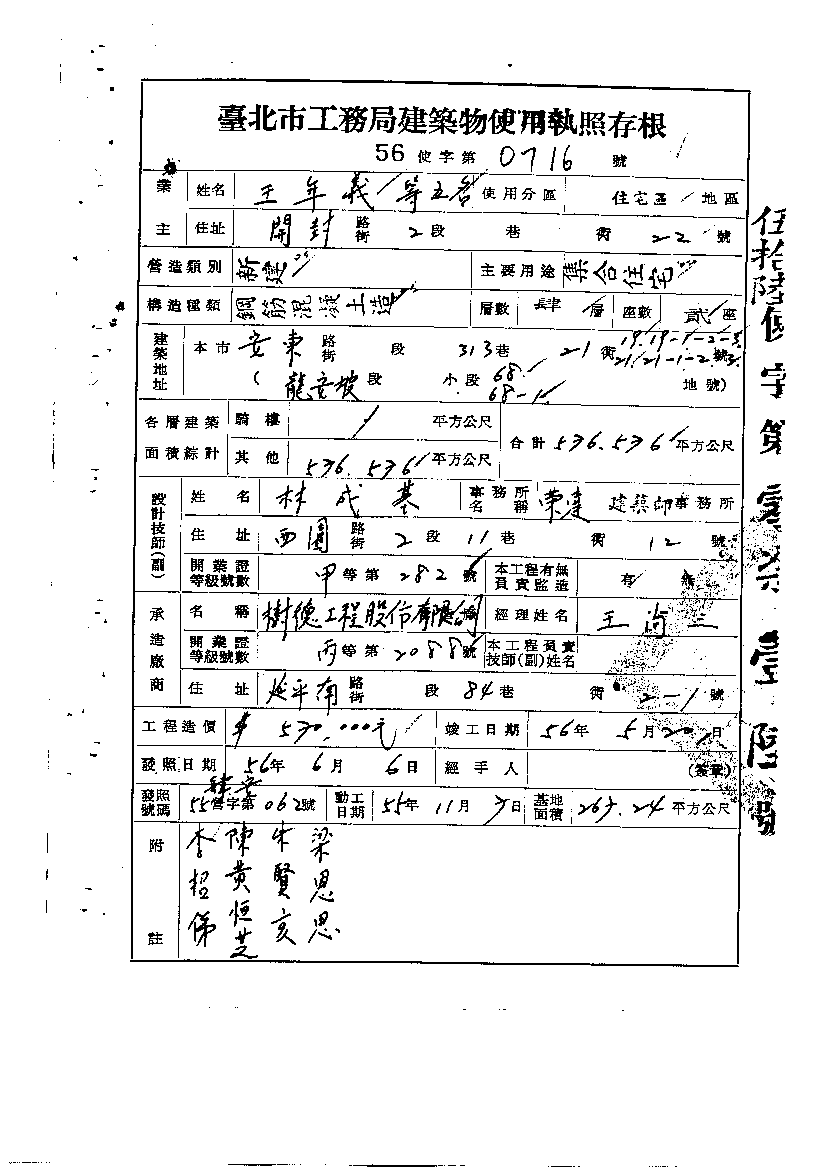 臺北市工務局建築物使用執照存根
56 使字第 0716 號
業主 姓名 王年義等五名 使用分區 住宅區 地區
住址 開封 路街 2 段 巷 街 22 號
營造類別 新建 主要用途 集合住宅
構造種類 鋼筋混凝土造 層數 肆 層 座數 貳 座
建築地址 本市 安東 路街 段 313 巷 21 街 19.19-1-2-3. 21.21-1-2.3. 號
( 龍安坡 段 小段 68. 68-1. 地號)
各層建築面積綜計 騎樓 平方公尺 合計 536.536 平方公尺
其他 536.536 平方公尺
設計技師(副) 姓名 林成基 事務所名稱 榮達 建築師事務所
住址 西園 路街 2 段 11 巷 街 12 號
開業證等級號數 甲等第 2826 號 本工程有無員責監造 有 無
承造廠商 名稱 樹德工程股份有限公司 經理姓名 王尚三
開業證等級號數 丙等第 2088 號 本工程員責技師(副)姓名
住址 延平南 路街 段 84 巷 街 2-1 號
工程造價 $ 530,000元 竣工日期 56年 5月 20日
發照日期 56年 6月 6日 經手人 (簽章)
發照號碼 55營字第 062號 動工日期 55年 11月 日 基地面積 265.24 平方公尺
附註 梁恩恩
朱賢亥
陳黃恒芝
李招俤
伍拾陸使字第零柒壹陸號